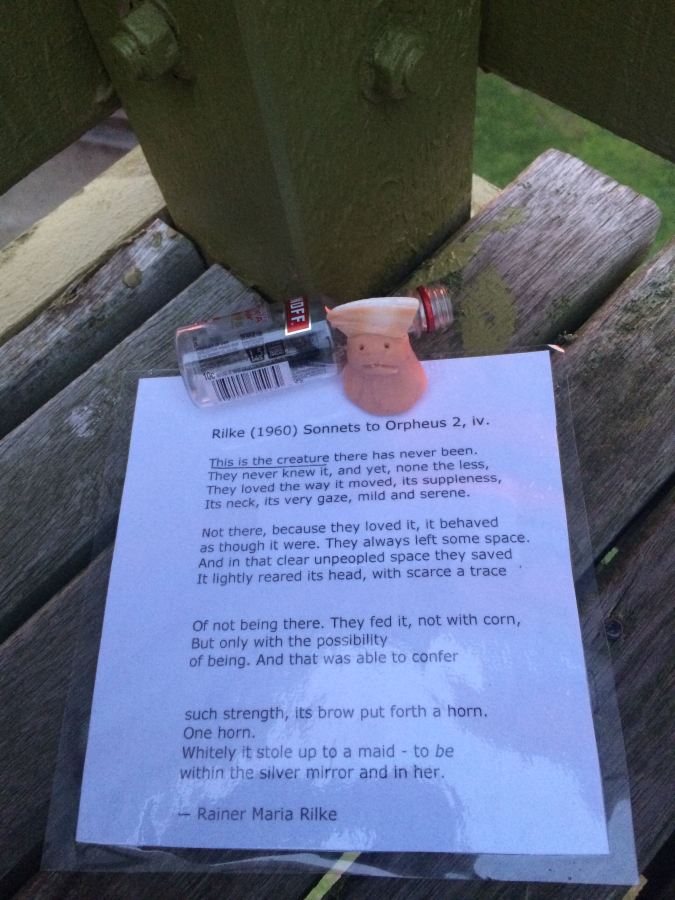 NOFF
Rilke (1960) Sonnets to Orpheus 2, iv.
This is the creature there has never been.
They never knew it, and yet, none the less,
They loved the way it moved, its suppleness,
Its neck, its very gaze, mild and serene.
Not there, because they loved it, it behaved
as though it were. They always left some space.
And in that clear unpeopled space they saved
It lightly reared its head, with scarce a trace
Of not being there. They fed it, not with corn,
But only with the possibility
of being. And that was able to confer
such strength, its brow put forth a horn.
One horn.
Whitely it stole up to a maid - to be
within the silver mirror and in her.
— Rainer Maria Rilke